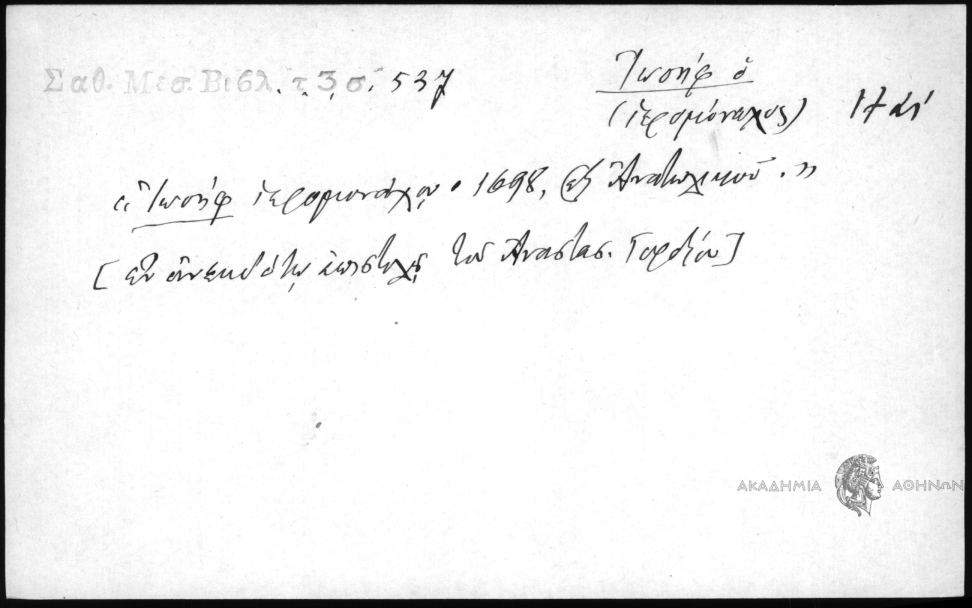 Σαθ. Μεσ. Βιβλ. τ. 3 σ. 537
Ἰωσήφ ὁ
(ἱερομόναχος) 17 αἰ
«Ἰωσήφ ἱερομονάχου • 1698, ἐξ Ἀνατολικοῦ.»
[ἐν ἀνεκδότῳ ἐπιστολῇ τοῦ Ἀναστασ. Γορδίου]
ΑΚΑΔΗΜΙΑ ΑΘΗΝΩΝ